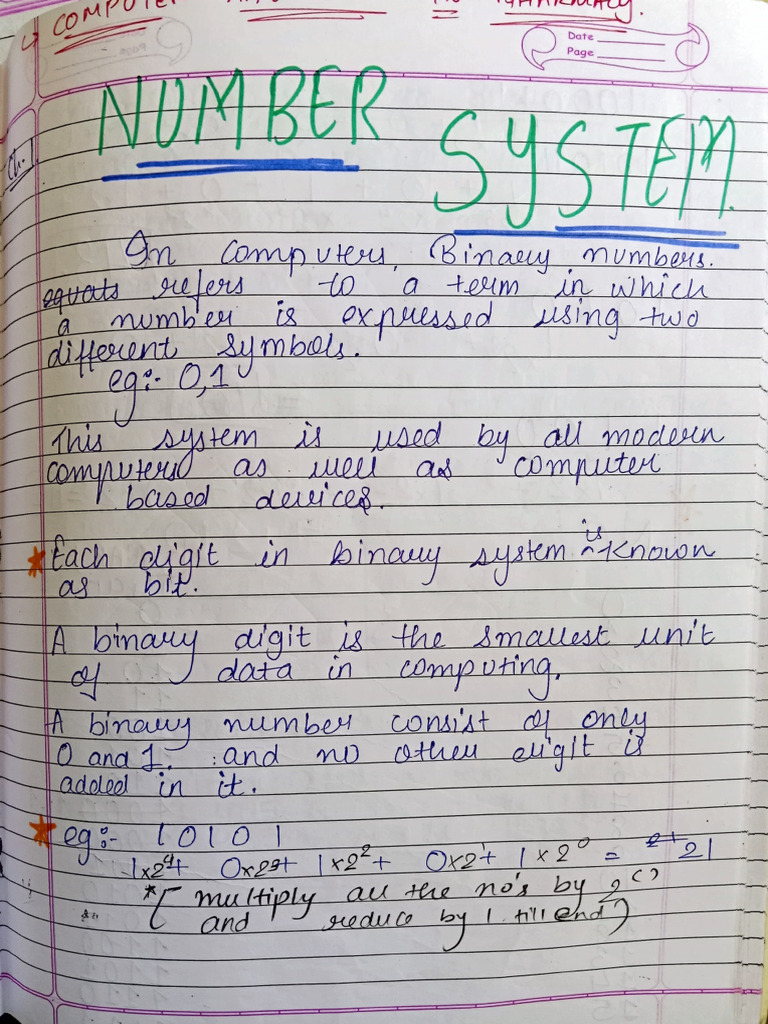 ↳ COMPUTER PHARMACY.
Date
Page
Ch. 1
NUMBER
SYSTEM.
In computers, Binary numbers.
equats refers to a term in which
a number is expressed using two
different symbols.
eg:- 0,1
This system is used by all modern
computers as well as computer
based devices.
* Each digit in binary system is known
as bit.
A binary digit is the smallest unit
of data in computing.
A binary number consist of only
0 and 1. : and no other digit is
added in it.
* eg:- 1 0 1 0 1
1x2⁴+ 0x2³+ 1x2²+ 0x2¹+ 1x2⁰ = 21
*( multiply all the no's by 2⁽ ⁾
and reduce by 1 till end)